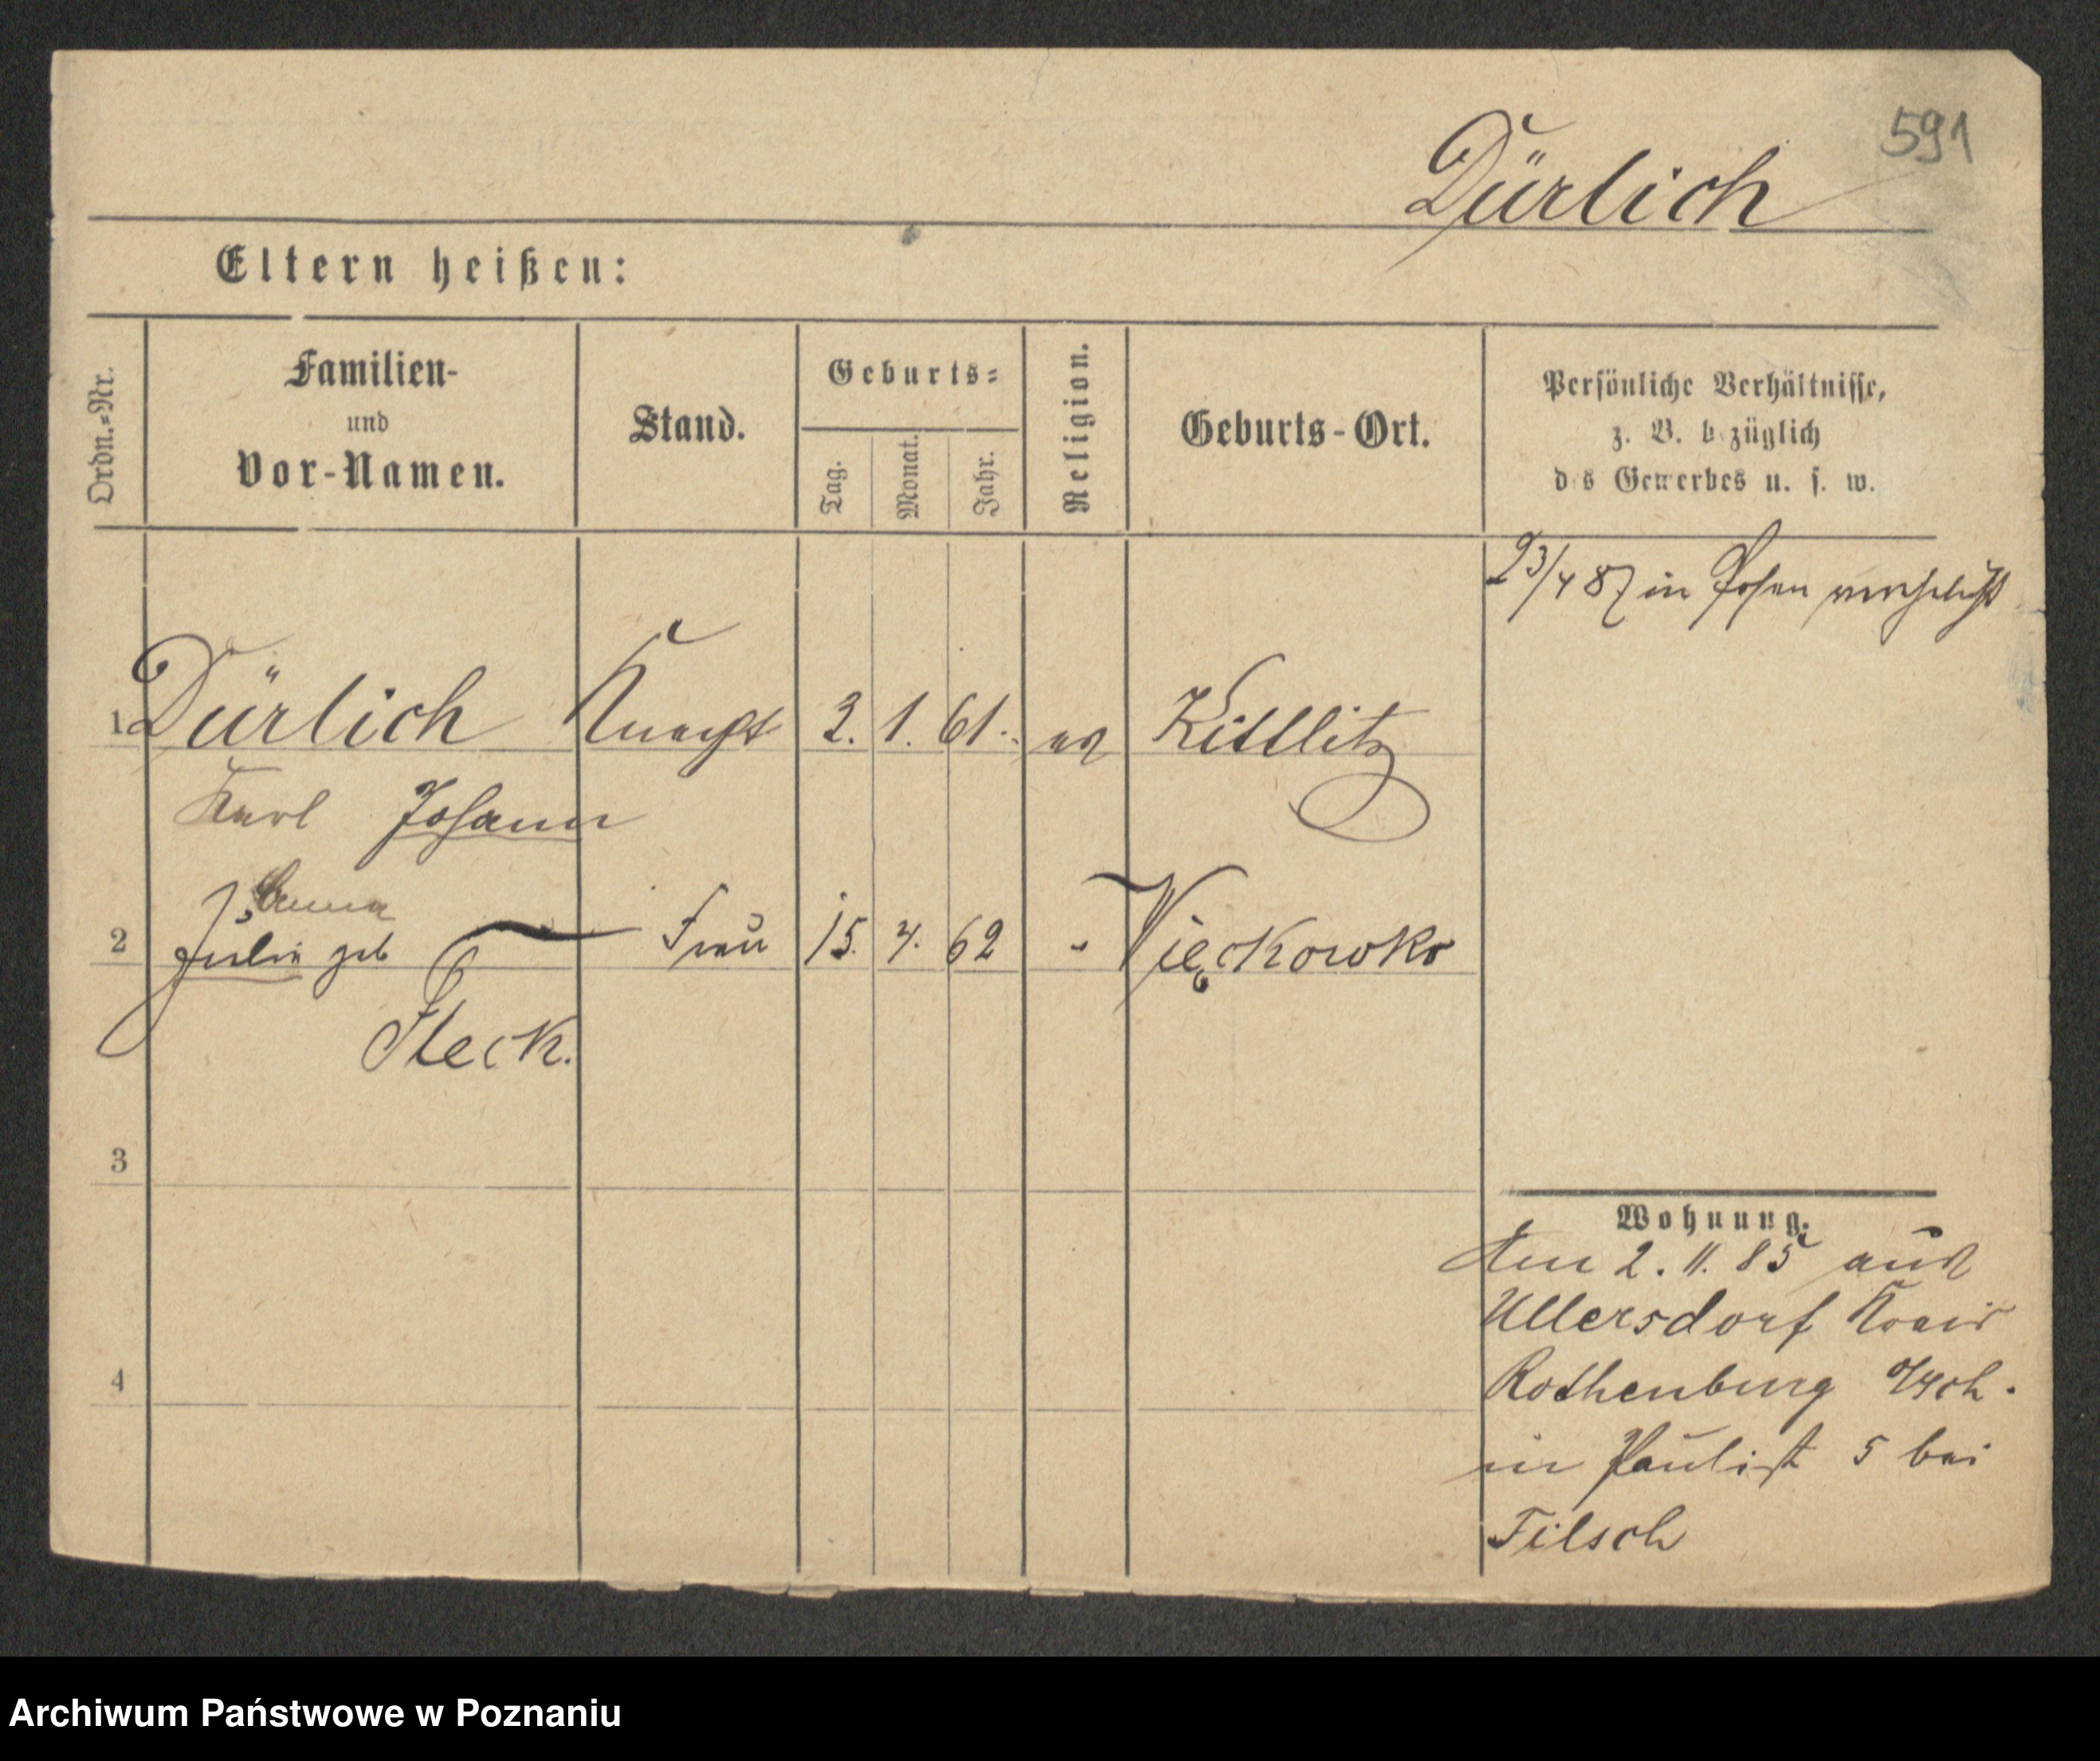 591
Dürlich
Eltern heißen:
Ordn.=Nr.
Familien-
und
Vor-Namen.
Stand.
Geburts=
Tag.
Monat.
Jahr.
Religion.
Geburts-Ort.
Persönliche Verhältnisse,
z. B. bezüglich
des Gewerbes u. s. w.
23/4 87 in Posen verehelicht
1 Dürlich Knecht 2. 1. 61. ev Kittlitz
Karl Johann
Anna
2 Julie geb Frau 15. 4. 62 " Więckowko
Fleck.
3
4
Wohnung.
Am 2. 11. 85 aus
Ullersdorf Kreis
Rothenburg
in Paulist 5 bei
Filsch
Archiwum Państwowe w Poznaniu